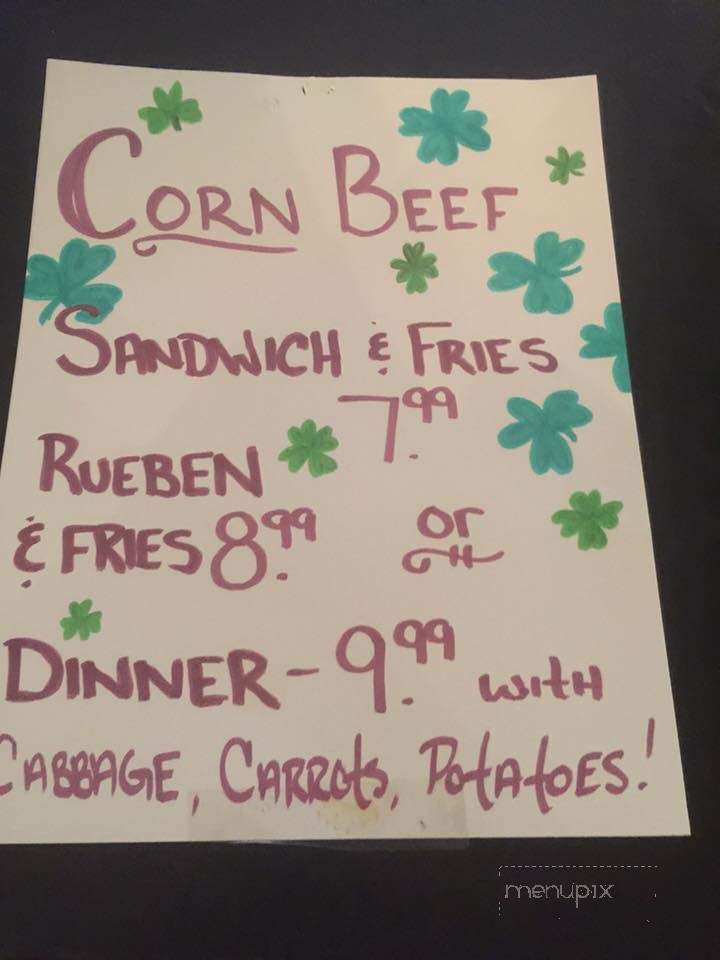 CORN BEEF
SANDWICH & FRIES
7.99
RUEBEN
& FRIES 8.99 or
DINNER - 9.99 with
CABBAGE, CARROTS, POTATOES!
menupix